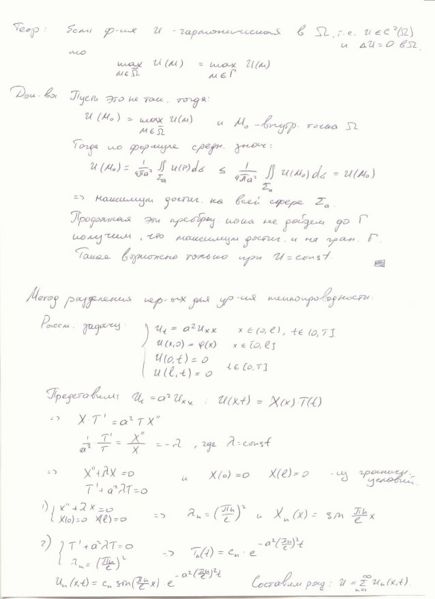 Теор: Если ф-ия u - гармоническая в Ω, т.е. u∈C²(Ω)
и Δu=0 в Ω.
то
max u(M) = max u(M)
M∈Ω̄ M∈Γ
Док-во: Пусть это не так. тогда:
u(M₀) = max u(M) и M₀ - внутр. точка Ω
M∈Ω̄
Тогда по формуле средн. знач:
u(M₀) = 1/4πa² ∬ u(P)dσ ≤ 1/4πa² ∬ u(M₀)dσ = u(M₀)
Σₐ Σₐ
=> максимум достиг. на всей сфере Σₐ.
Продолжая эти преобраз. пока не дойдем до Γ
получим, что максимум достиг. и на гран. Γ.
Такое возможно только при u=const.
Метод разделения пер-ых для ур-ия теплопроводности.
Рассм. задачу:
{ Uₜ = a²Uₓₓ x∈(0,ℓ), t∈(0,T]
U(x,0) = φ(x) x∈[0,ℓ]
U(0,t) = 0
U(ℓ,t) = 0 t∈[0,T]
Представим: Uₜ = a²Uₓₓ : U(x,t) = X(x)T(t)
=> X·T' = a²TX''
1/a² T'/T = X''/X = -λ, где λ=const
=> X''+λX=0 и X(0)=0 X(ℓ)=0 - из граничн.
T'+a²λT=0 условий.
1) { X''+λX=0
X(0)=0 X(ℓ)=0 => λₙ = (πn/ℓ)² и Xₙ(x) = sin πn/ℓ x
2) { T'+a²λT=0
λₙ = (πn/ℓ)² => Tₙ(t) = cₙ·e^(-a²(πn/ℓ)²t)
Uₙ(x,t) = cₙ sin(πn/ℓ x)·e^(-a²(πn/ℓ)²t) Составим ряд: U = Σ Uₙ(x,t)